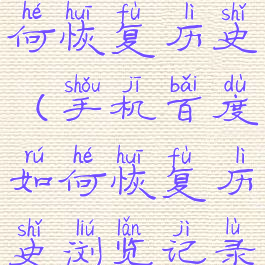 hé huī fù lì shǐ
何恢复历史
shǒu jī bǎi dù
（手机百度
rú hé huī fù lì
如何恢复历
shǐ liú lǎn jì lù
史浏览记录